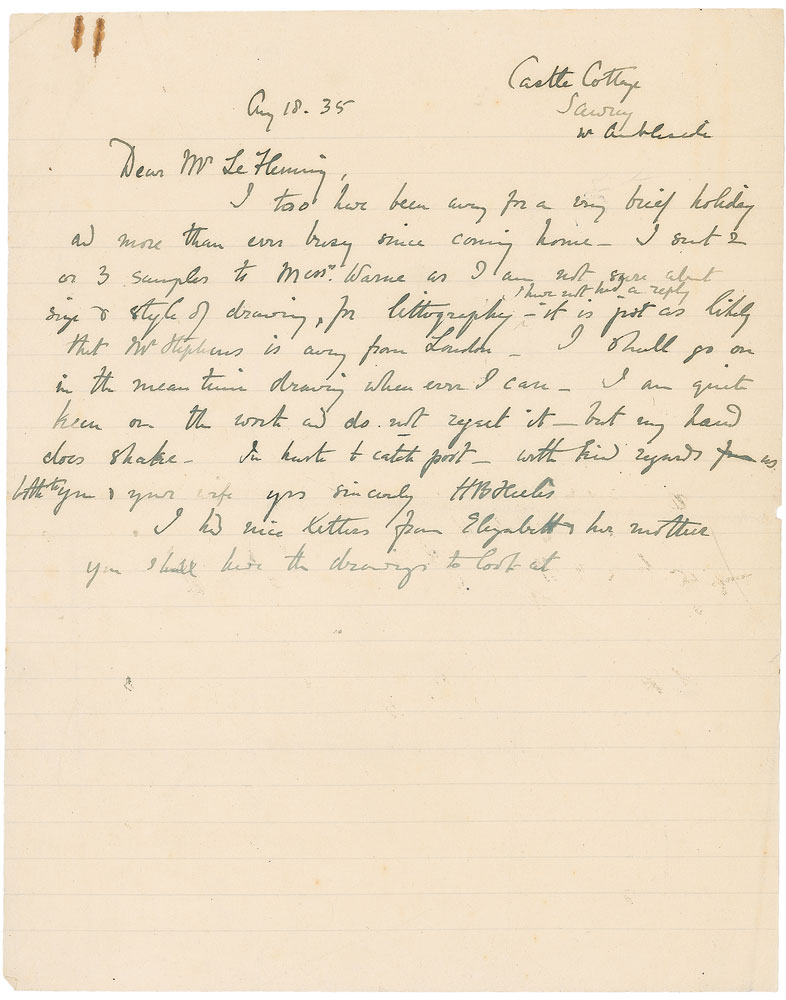 Castle Cottage
Sawrey
nr Ambleside
Aug 18. 35
Dear Mr Le Fleming,
I too have been away for a very brief holiday
and more than ever busy since coming home – I sent 2
or 3 samples to Messrs. Warne as I am not sure about
size & style of drawing, for lithography – it is just as likely
I have not had a reply
that Mr Stephens is away from London – I shall go on
in the mean time drawing when ever I can – I am quite
keen on the work and do not regret it – but my hand
does shake – In haste to catch post – with kind regards from us
both to you & your wife yrs sincerely HBHeelis
I had nice letters from Elizabeth & her mother
you shall have the drawings to look at